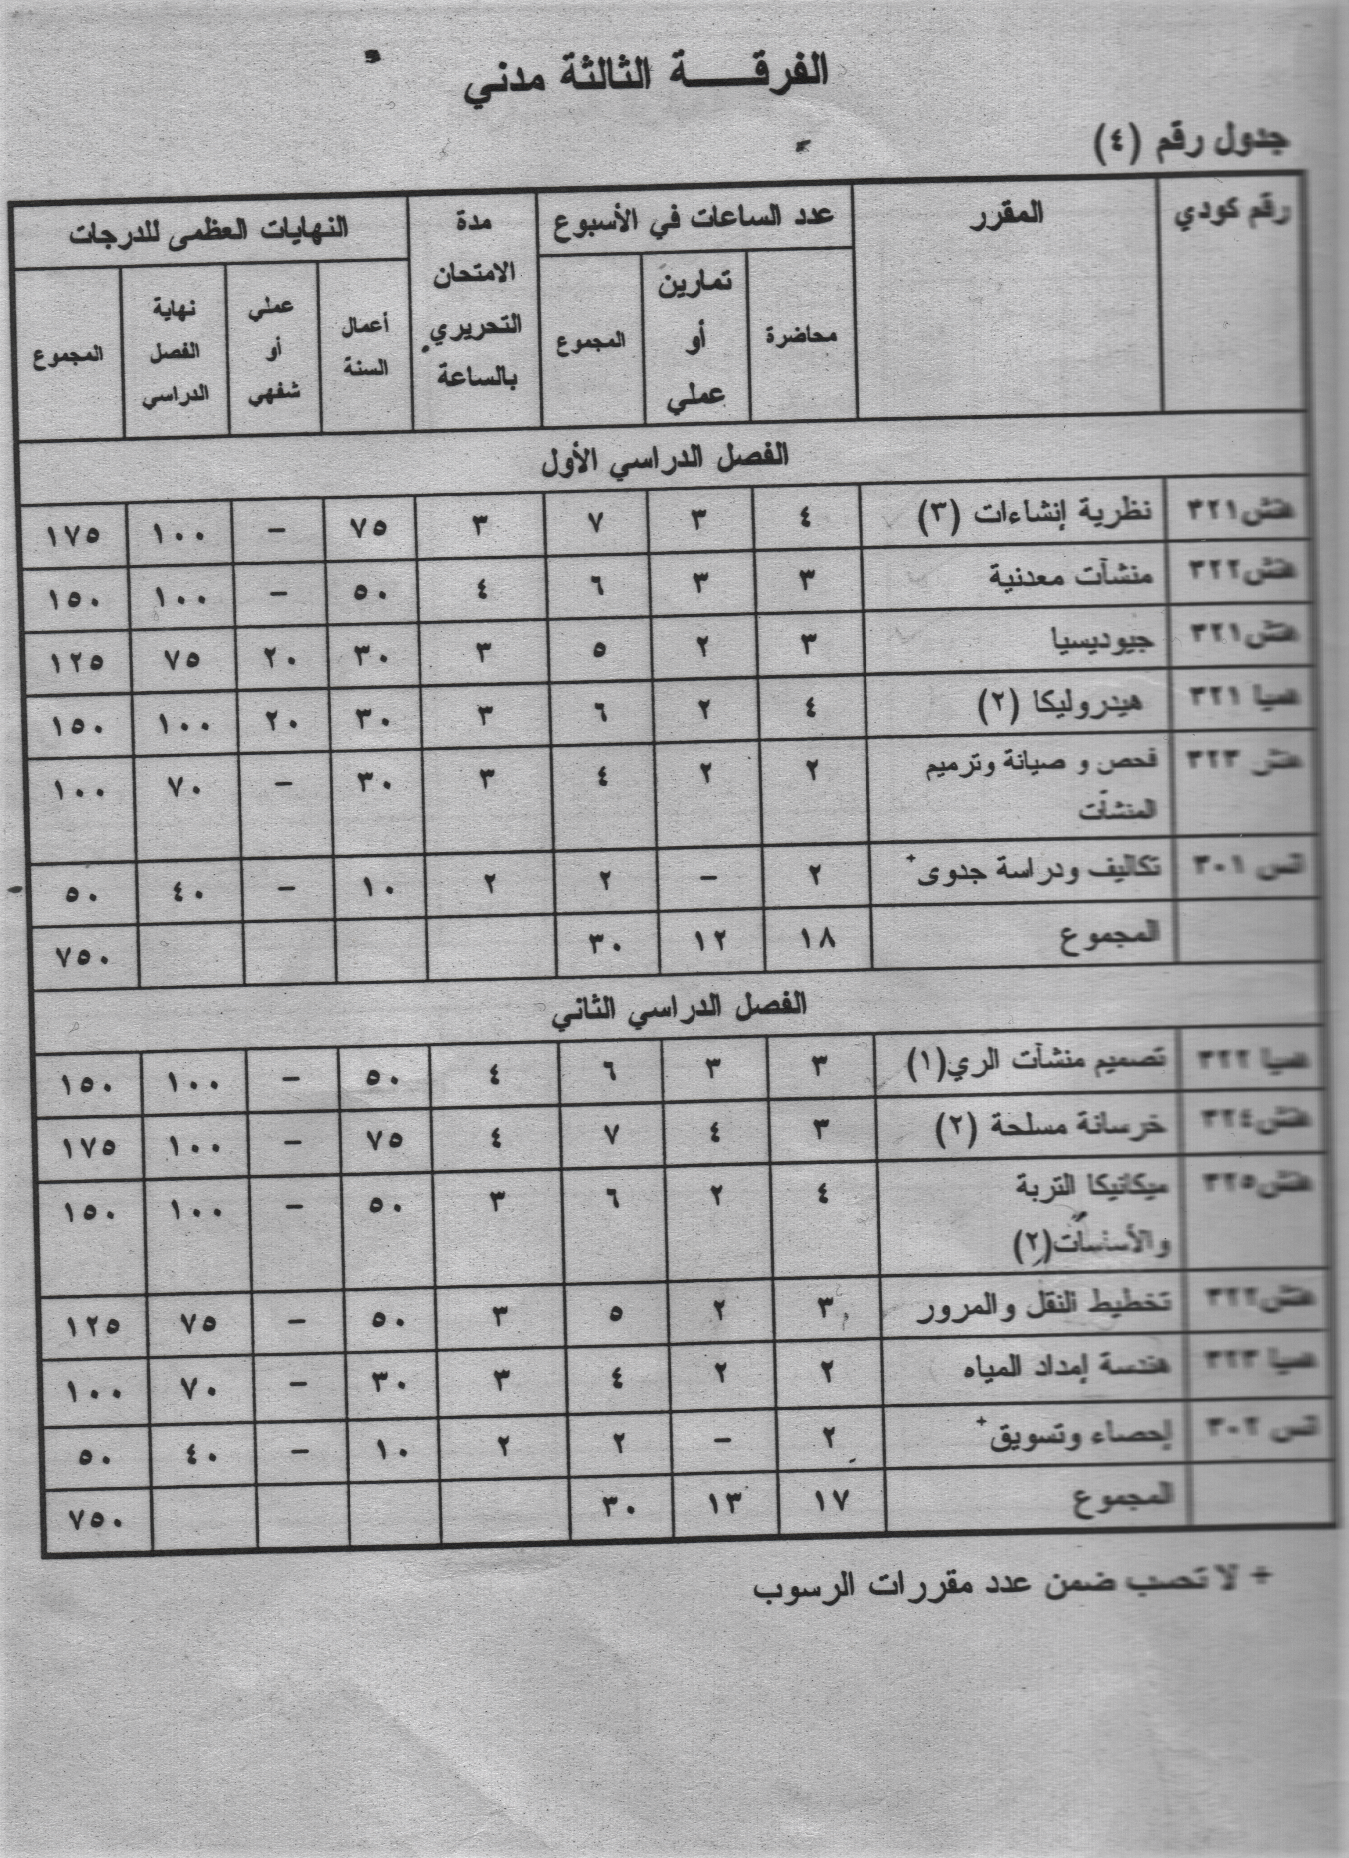 الفرقـــــة الثالثة مدني
جدول رقم (٤)
رقم كودي | المقرر | عدد الساعات في الأسبوع | مدة الامتحان التحريري بالساعة | النهايات العظمى للدرجات
محاضرة | تمارين أو عملي | المجموع | أعمال السنة | عملي أو شفهي | نهاية الفصل الدراسي | المجموع
الفصل الدراسي الأول
٣٢١ | نظرية إنشاءات (٣) | ٤ | ٣ | ٧ | ٣ | ٧٥ | – | ١٠٠ | ١٧٥
٣٢٢ | منشآت معدنية | ٣ | ٣ | ٦ | ٤ | ٥٠ | – | ١٠٠ | ١٥٠
٣٢١ | جيوديسيا | ٣ | ٢ | ٥ | ٣ | ٣٠ | ٢٠ | ٧٥ | ١٢٥
٣٢١ | هيدروليكا (٢) | ٤ | ٢ | ٦ | ٣ | ٣٠ | ٢٠ | ١٠٠ | ١٥٠
٣٢٣ | فحص و صيانة وترميم | ٢ | ٢ | ٤ | ٣ | ٣٠ | – | ٧٠ | ١٠٠
المنشآت
٣٠١ | تكاليف ودراسة جدوى+ | ٢ | – | ٢ | ٢ | ١٠ | – | ٤٠ | ٥٠
المجموع | ١٨ | ١٢ | ٣٠ | ٧٥٠
الفصل الدراسي الثاني
٣٢٢ | تصميم منشآت الري(١) | ٣ | ٣ | ٦ | ٤ | ٥٠ | – | ١٠٠ | ١٥٠
٣٢٤ | خرسانة مسلحة (٢) | ٣ | ٤ | ٧ | ٤ | ٧٥ | – | ١٠٠ | ١٧٥
٣٢٥ | ميكانيكا التربة | ٤ | ٢ | ٦ | ٣ | ٥٠ | – | ١٠٠ | ١٥٠
والأساسات(٢)
٣٢٢ | تخطيط النقل والمرور | ٣ | ٢ | ٥ | ٣ | ٥٠ | – | ٧٥ | ١٢٥
٣٢٣ | هندسة إمداد المياه | ٢ | ٢ | ٤ | ٣ | ٣٠ | – | ٧٠ | ١٠٠
٣٠٢ | إحصاء وتسويق+ | ٢ | – | ٢ | ٢ | ١٠ | – | ٤٠ | ٥٠
المجموع | ١٧ | ١٣ | ٣٠ | ٧٥٠
+ لا تحسب ضمن عدد مقررات الرسوب